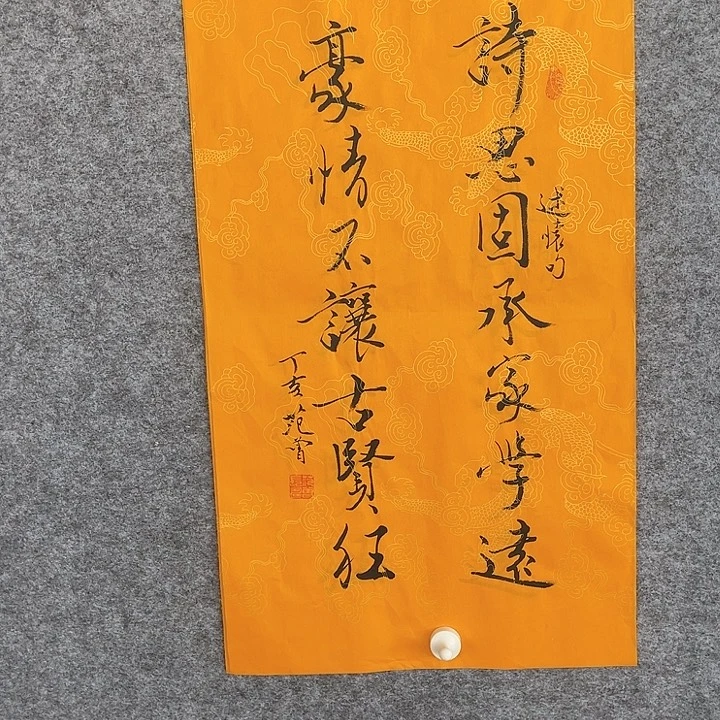 詩思固承家學遠
述懷句
豪情不讓古賢狂
丁亥苑曾